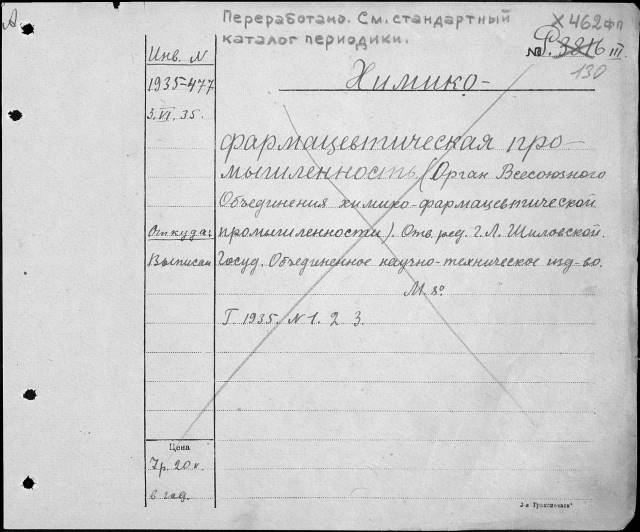 А.
Переработано. См. стандартный
каталог периодики.
Х 462 фп
№ Р. 3816 III.
130
Инв. N
1935-477
3.VI.35.
Химико-
фармацевтическая про-
мышленность (Орган Всесоюзного
Объединения химико-фармацевтической
Откуда: промышленности). Отв. ред. Г. Л. Шиловской.
Выписан Госуд. Объединенное научно-техническое изд-во.
М. 8°
Г. 1935. N 1. 2 3.
Цена
7р. 20к.
в год.